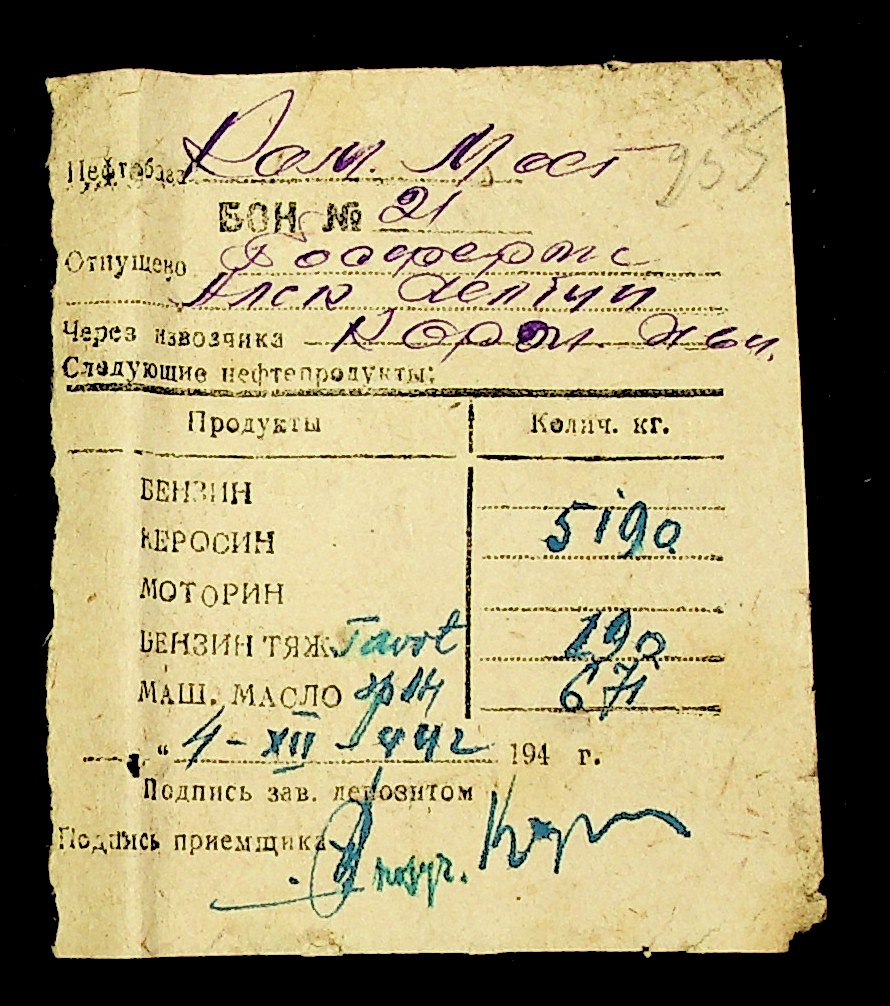 Нефтобаза Ком. Мост
955
БОН № 21
Отпущено Госферме
Через извозчика
Следующие нефтепродукты:
Продукты Колич. кг.
БЕНЗИН
КЕРОСИН 5190
МОТОРИН
БЕНЗИН ТЯЖ. Tavot 190
МАШ. МАСЛО 671
" 4-XII-942 194 г.
Подпись зав. депозитом
Подпись приемщика